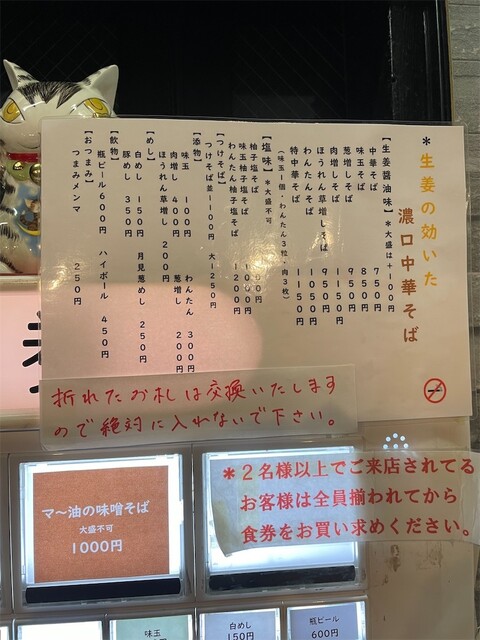 *生姜の効いた
濃口中華そば
【生姜醤油味】*大盛は+100円
中華そば 750円
味玉そば 850円
葱増しそば 950円
肉増しそば 1150円
ほうれん草増しそば 950円
わんたんそば 1050円
特中華そば 1150円
(味玉1個・わんたん3粒・肉3枚)
【塩味】*大盛不可
柚子塩そば
味玉柚子塩そば
わんたん柚子塩そば 1200円
【つけそば】
つけそば並1100円 大1250円
【添物】
味玉 100円 わんたん 300円
肉増し 400円 葱増し 200円
ほうれん草増し 200円
【めし】
白めし 150円 月見葱めし 250円
豚めし 350円
【飲物】
瓶ビール600円 ハイボール 450円
【おつまみ】
つまみメンマ 250円
折れたお札は交換いたします
ので絶対に入れないで下さい。
*2名様以上でご来店されてる
お客様は全員揃われてから
食券をお買い求めください。
マ〜油の味噌そば
大盛不可
1000円
味玉
白めし
150円
瓶ビール
600円